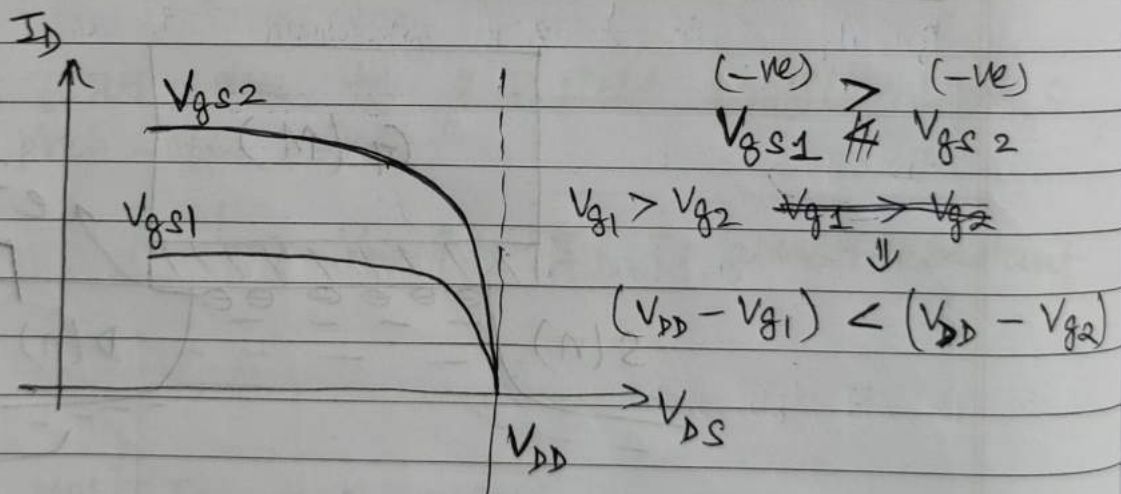 I_D
V_gs2
V_gs1
V_DD
V_DS
(-ve) > (-ve)
V_gs1 V_gs2
V_g1 > V_g2 V_g1 > V_g2
⇓
(V_DD - V_g1) < (V_DD - V_g2)